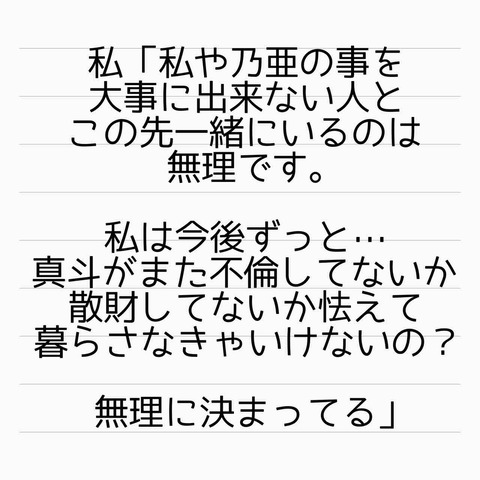 私「私や乃亜の事を
大事に出来ない人と
この先一緒にいるのは
無理です。
私は今後ずっと…
真斗がまた不倫してないか
散財してないか怯えて
暮らさなきゃいけないの？
無理に決まってる」